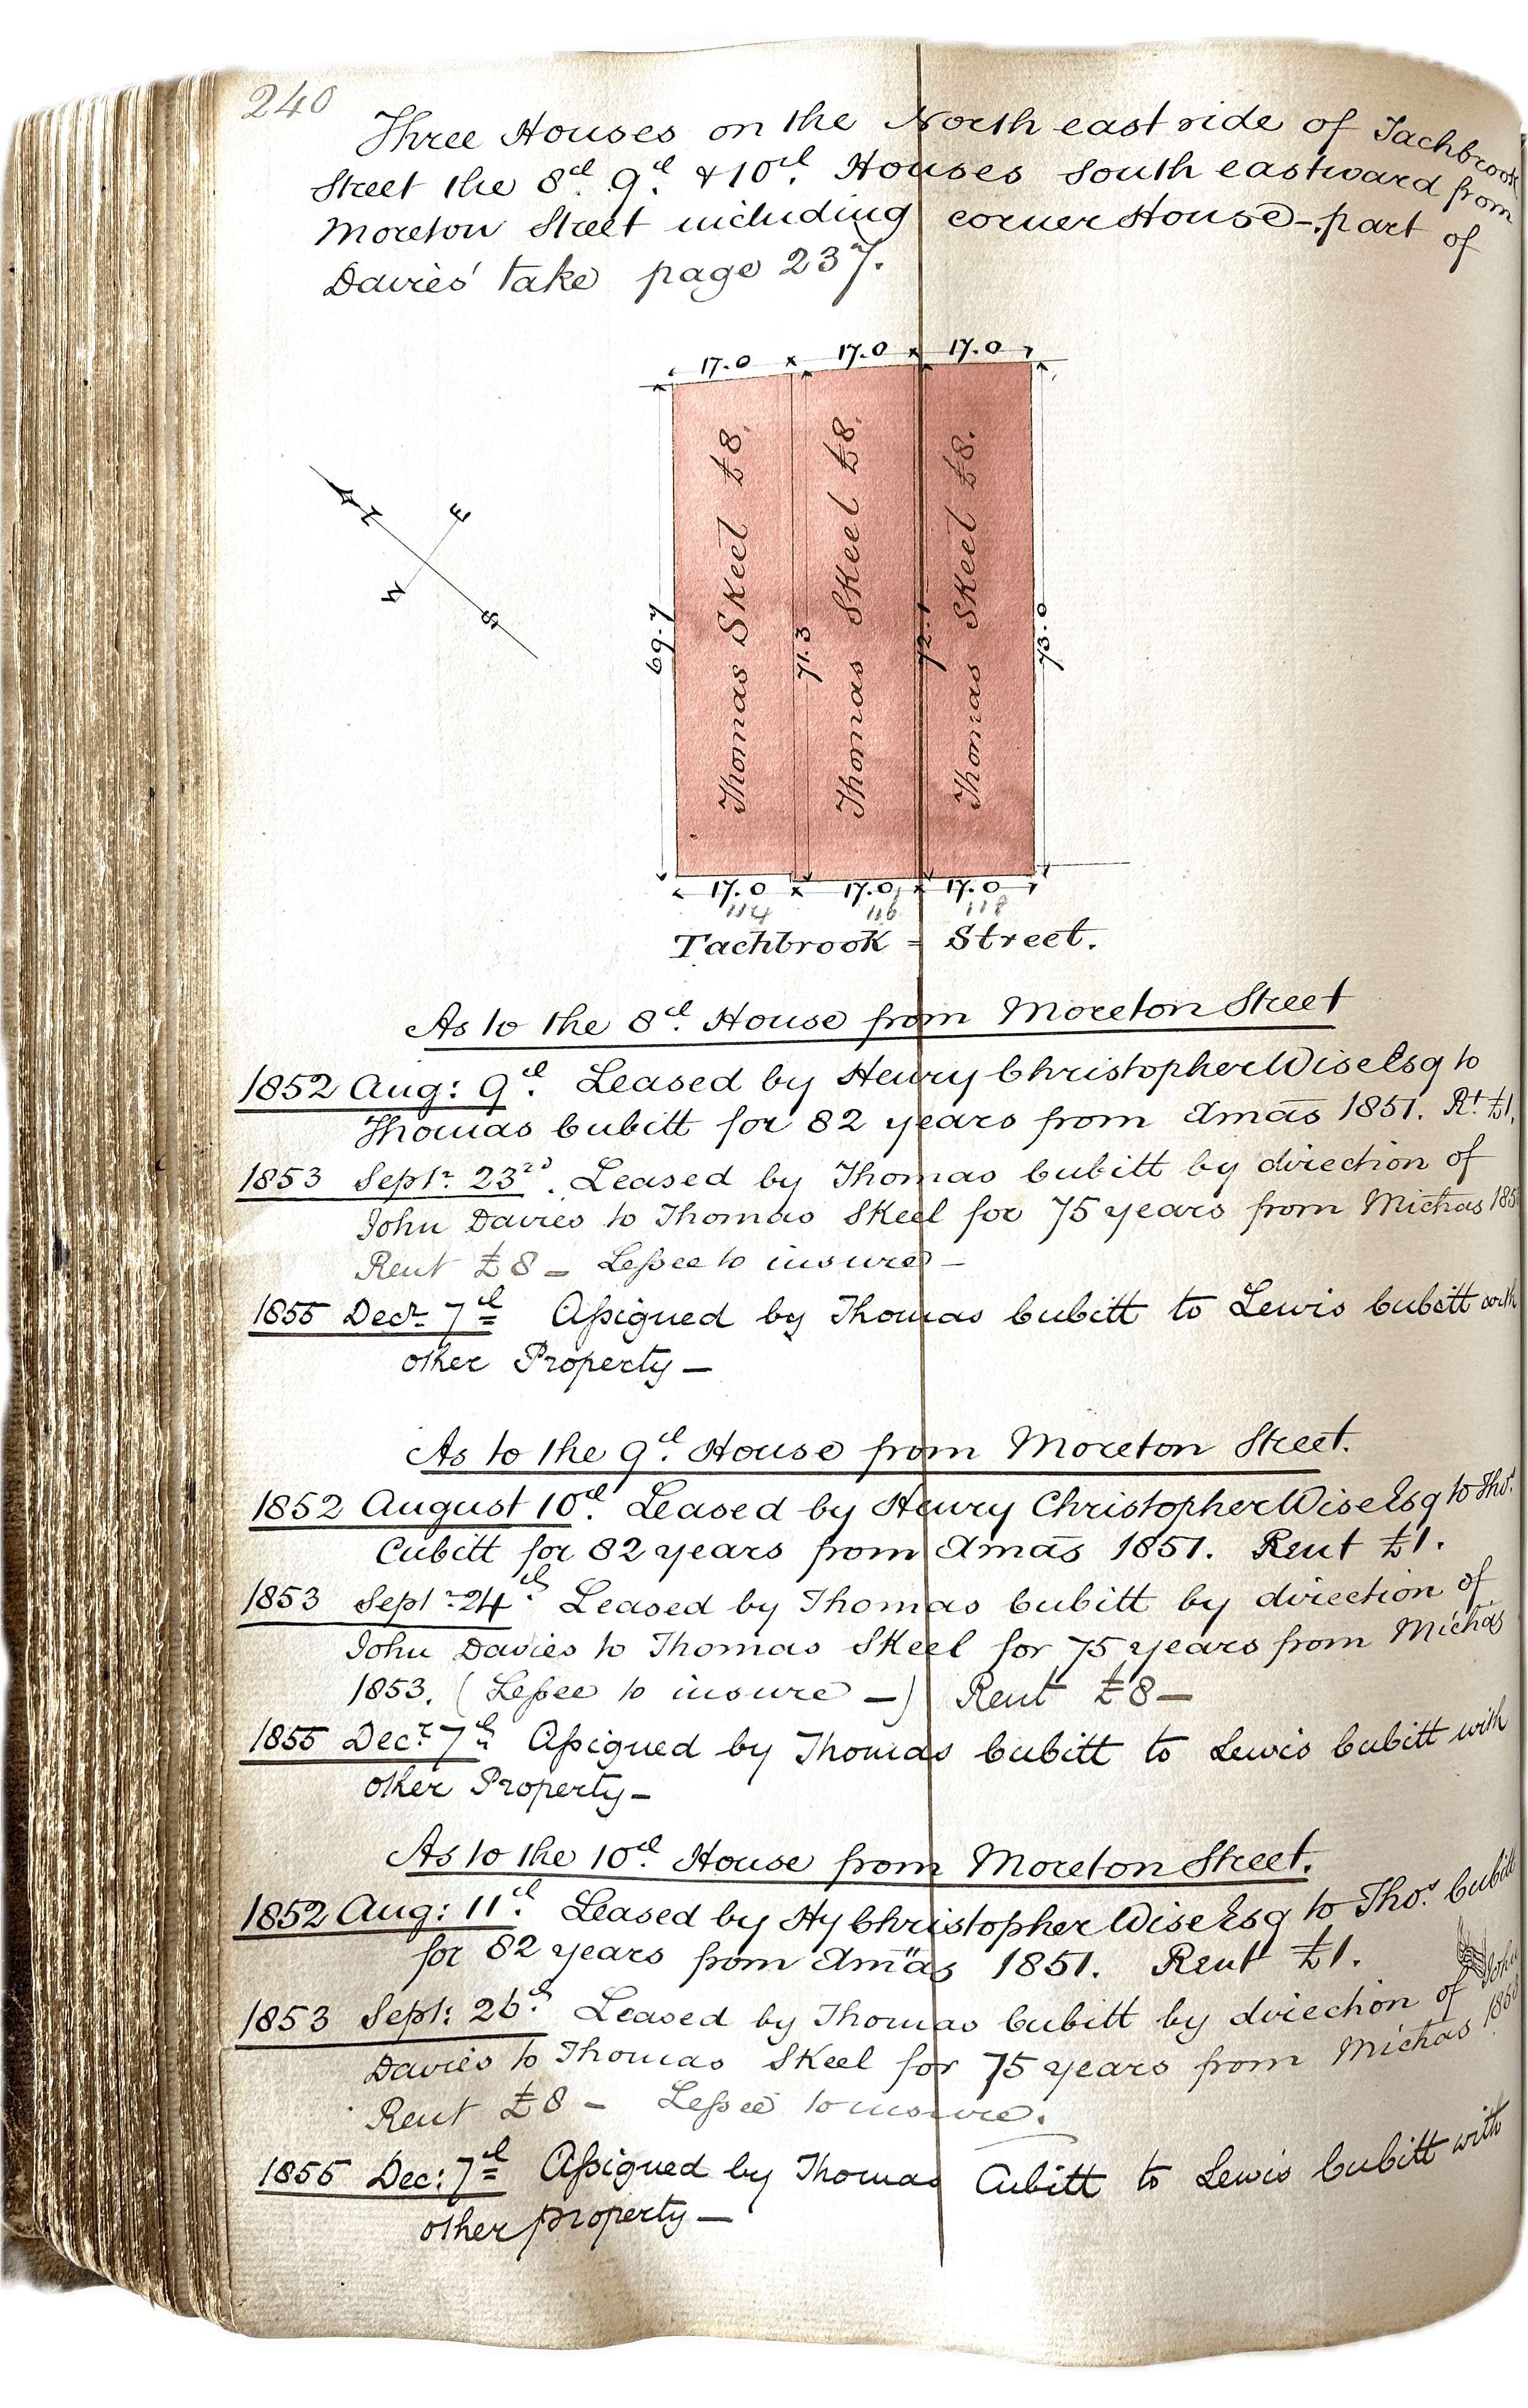 240
Three Houses on the North east side of Tachbrook
Street the 8th. 9th. & 10th. Houses south eastward from
Moreton Street including corner House - part of
Davies' take page 237.
17.0 17.0 17.0
N E W S
Thomas Skeel £8.
Thomas Skeel £8.
Thomas Skeel £8.
69.7 71.3 72.1 73.0
17.0 17.0 17.0
114 116 118
Tachbrook = Street.
As to the 8th. House from Moreton Street
1852 Aug: 9th. Leased by Henry Christopher Wise Esq to
Thomas Cubitt for 82 years from Xmas 1851. Rt £1.
1853 Septr. 23rd. Leased by Thomas Cubitt by direction of
John Davies to Thomas Skeel for 75 years from Michas
Rent £8 – Lessee to insure –
1855 Decr. 7th Assigned by Thomas Cubitt to Lewis Cubitt with
other Property –
As to the 9th. House from Moreton Street.
1852 August 10th. Leased by Henry Christopher Wise Esq to Thos.
Cubitt for 82 years from Xmas 1851. Rent £1.
1853 Septr. 24th Leased by Thomas Cubitt by direction of
John Davies to Thomas Skeel for 75 years from Michas
1853. (Lessee to insure –) Rent £8 –
1855 Decr. 7th Assigned by Thomas Cubitt to Lewis Cubitt with
other Property –
As to the 10th. House from Moreton Street.
1852 Aug: 11th. Leased by Hy Christopher Wise Esq to Thos. Cubitt
for 82 years from Xmas 1851. Rent £1.
1853 Sept: 26th. Leased by Thomas Cubitt by direction of John
Davies to Thomas Skeel for 75 years from Michas 1853
Rent £8 – Lessee to insure.
1855 Dec: 7th Assigned by Thomas Cubitt to Lewis Cubitt with
other property –